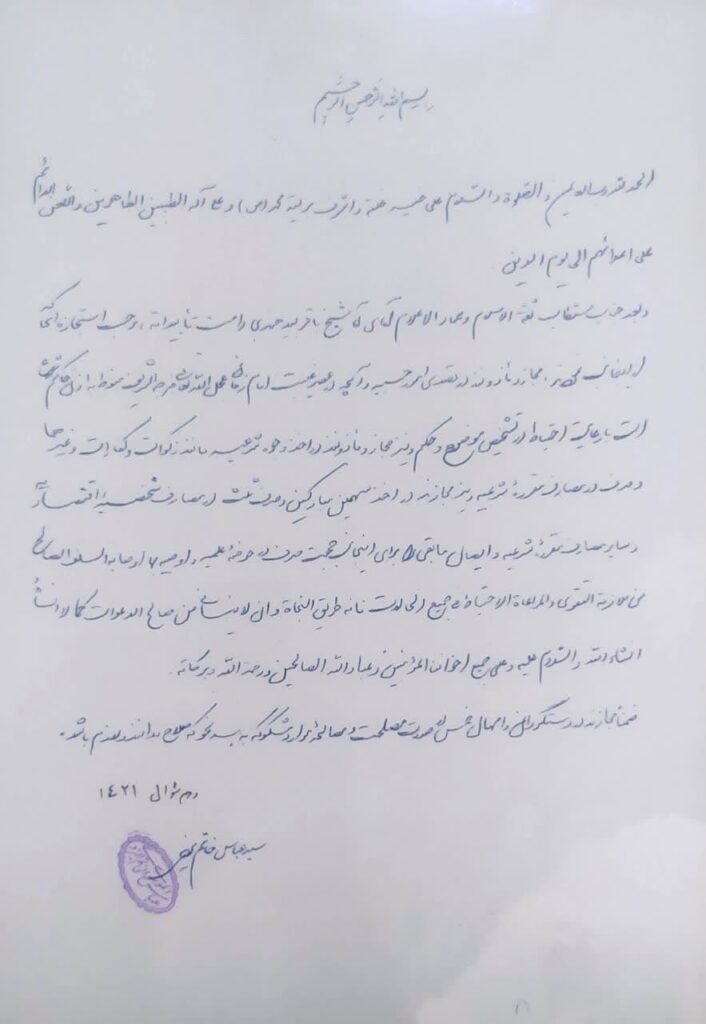 بسم الله الرحمن الرحیم
الحمد لله رب العالمین و الصلوة و السلام علی خلقه و اشرف بریته محمد (ص) و علی آله الطیبین الطاهرین و اللعن الدائم
علی اعدائهم الی یوم الدین
و بعد جناب مستطاب ثقة الاسلام و عماد الاعلام آقای شیخ باقر دامت تأییداته
مجاز و مأذونند در تصدی امور حسبیه و آنچه در عصر غیبت امام زمان عجل الله تعالی فرجه الشریف منوط به اذن حاکم شرع
است با رعایت احتیاط در تشخیص موضوع و حکم و نیز مجاز و مأذونند در اخذ وجوه شرعیه مانند زکوات و کفارات و غیرها
و صرف در مصارف مقرره شرعیه و نیز مجازند در اخذ سهمین مبارکین و صرف ثلث در مصارف شخصیه اقتصاداً
و سایر مصارف مقرره شرعیه و ایصال مابقی را برای اینجانب جهت صرف در حوزه علمیه و اوصیه بما اوصانی به السلف الصالح
من ملازمة التقوی و المراعاة الاحتیاط فی جمیع الحالات فانه طریق النجاة و ان لا ینسانی من صالح الدعوات کما لا انساه
انشاء الله و السلام علیه و علی جمیع اخواننا المؤمنین و عباد الله الصالحین و رحمة الله و برکاته
ضمناً مجازند در دستگردان و امهال خمس در صورت مصلحت و مصالحه موارد مشکوکه به نحوی که صلاح بدانند و لازم باشد.
دوم شوال ١٤٢١
سید عباس خاتم یزدی